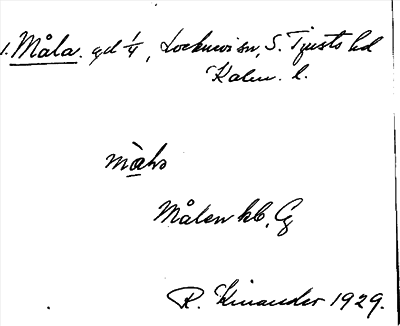 1. Måla. gd 1/4, Locknevi sn, S. Tjusts hd
Kalm. l.
måla
Målen kb. Cg
R. Kinander 1929.